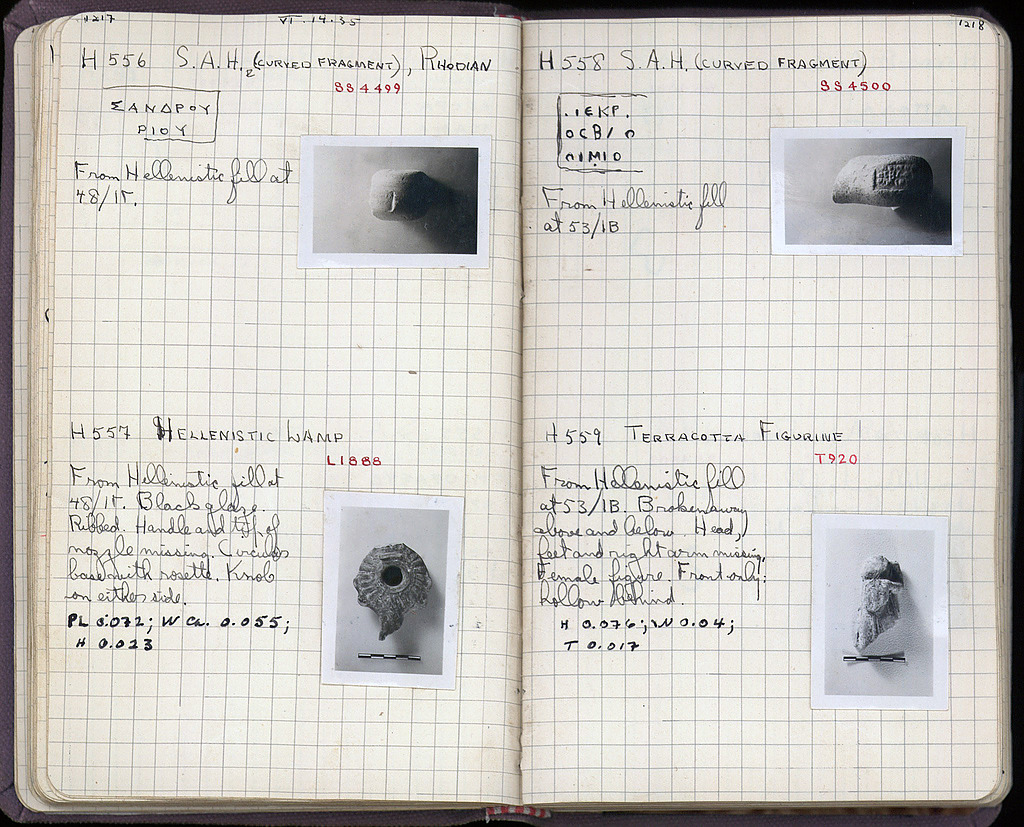 1217
VI·14·35
H 556 S.A.H. (CURVED FRAGMENT), RHODIAN
2
SS4499
ΣΑΝΔΡΟΥ
ΡΙΟΥ
From Hellenistic fill at
48/ΙΓ.
H 557 HELLENISTIC LAMP
L1888
From Hellenistic fill at
48/ΙΓ. Black glaze.
Ribbed. Handle and tip of
nozzle missing. Circular
base with rosette. Knob
on either side.
PL 0.072; W ca. 0.055;
H 0.023
1218
H 558 S.A.H. (CURVED FRAGMENT)
SS4500
.ΙЄΚΡ.
ΟϹΒ/Ο
ΠΙΜΙΟ
From Hellenistic fill
at 53/ΙΒ
H 559 TERRACOTTA FIGURINE
T920
From Hellenistic fill
at 53/ΙΒ. Broken away
above and below. Head,
feet and right arm missing.
Female figure. Front only;
hollow behind.
H 0.076; W 0.04;
T 0.017